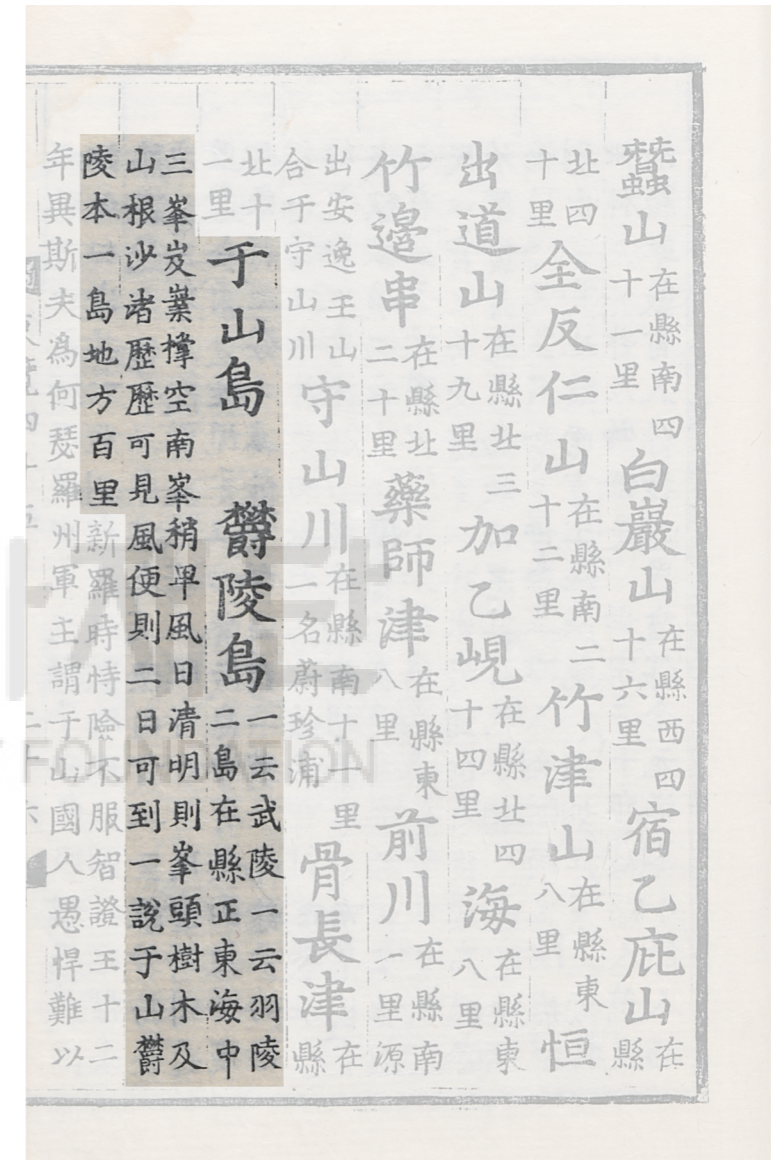 蠶山在縣南四十一里白巖山在縣西四十六里宿乙庇山在縣
北四十里全反仁山在縣南二十二里竹津山在縣東八里恒
出道山在縣北三十九里加乙峴在縣北四十四里海在縣東八里
竹邊串在縣北二十里藥師津在縣東八里前川在縣南一里源
出安逸王山合于守山川守山川在縣南十一里一名蔚珍浦骨長津在縣
北十一里于山島 欝陵島一云武陵一云羽陵二島在縣正東海中
三峯岌嶪撑空南峯稍卑風日清明則峯頭樹木及
山根沙渚歷歷可見風便則二日可到一說于山欝
陵本一島地方百里新羅時恃險不服智證王十二
年異斯夫爲何瑟羅州軍主謂于山國人愚悍難以
FOUNDATION